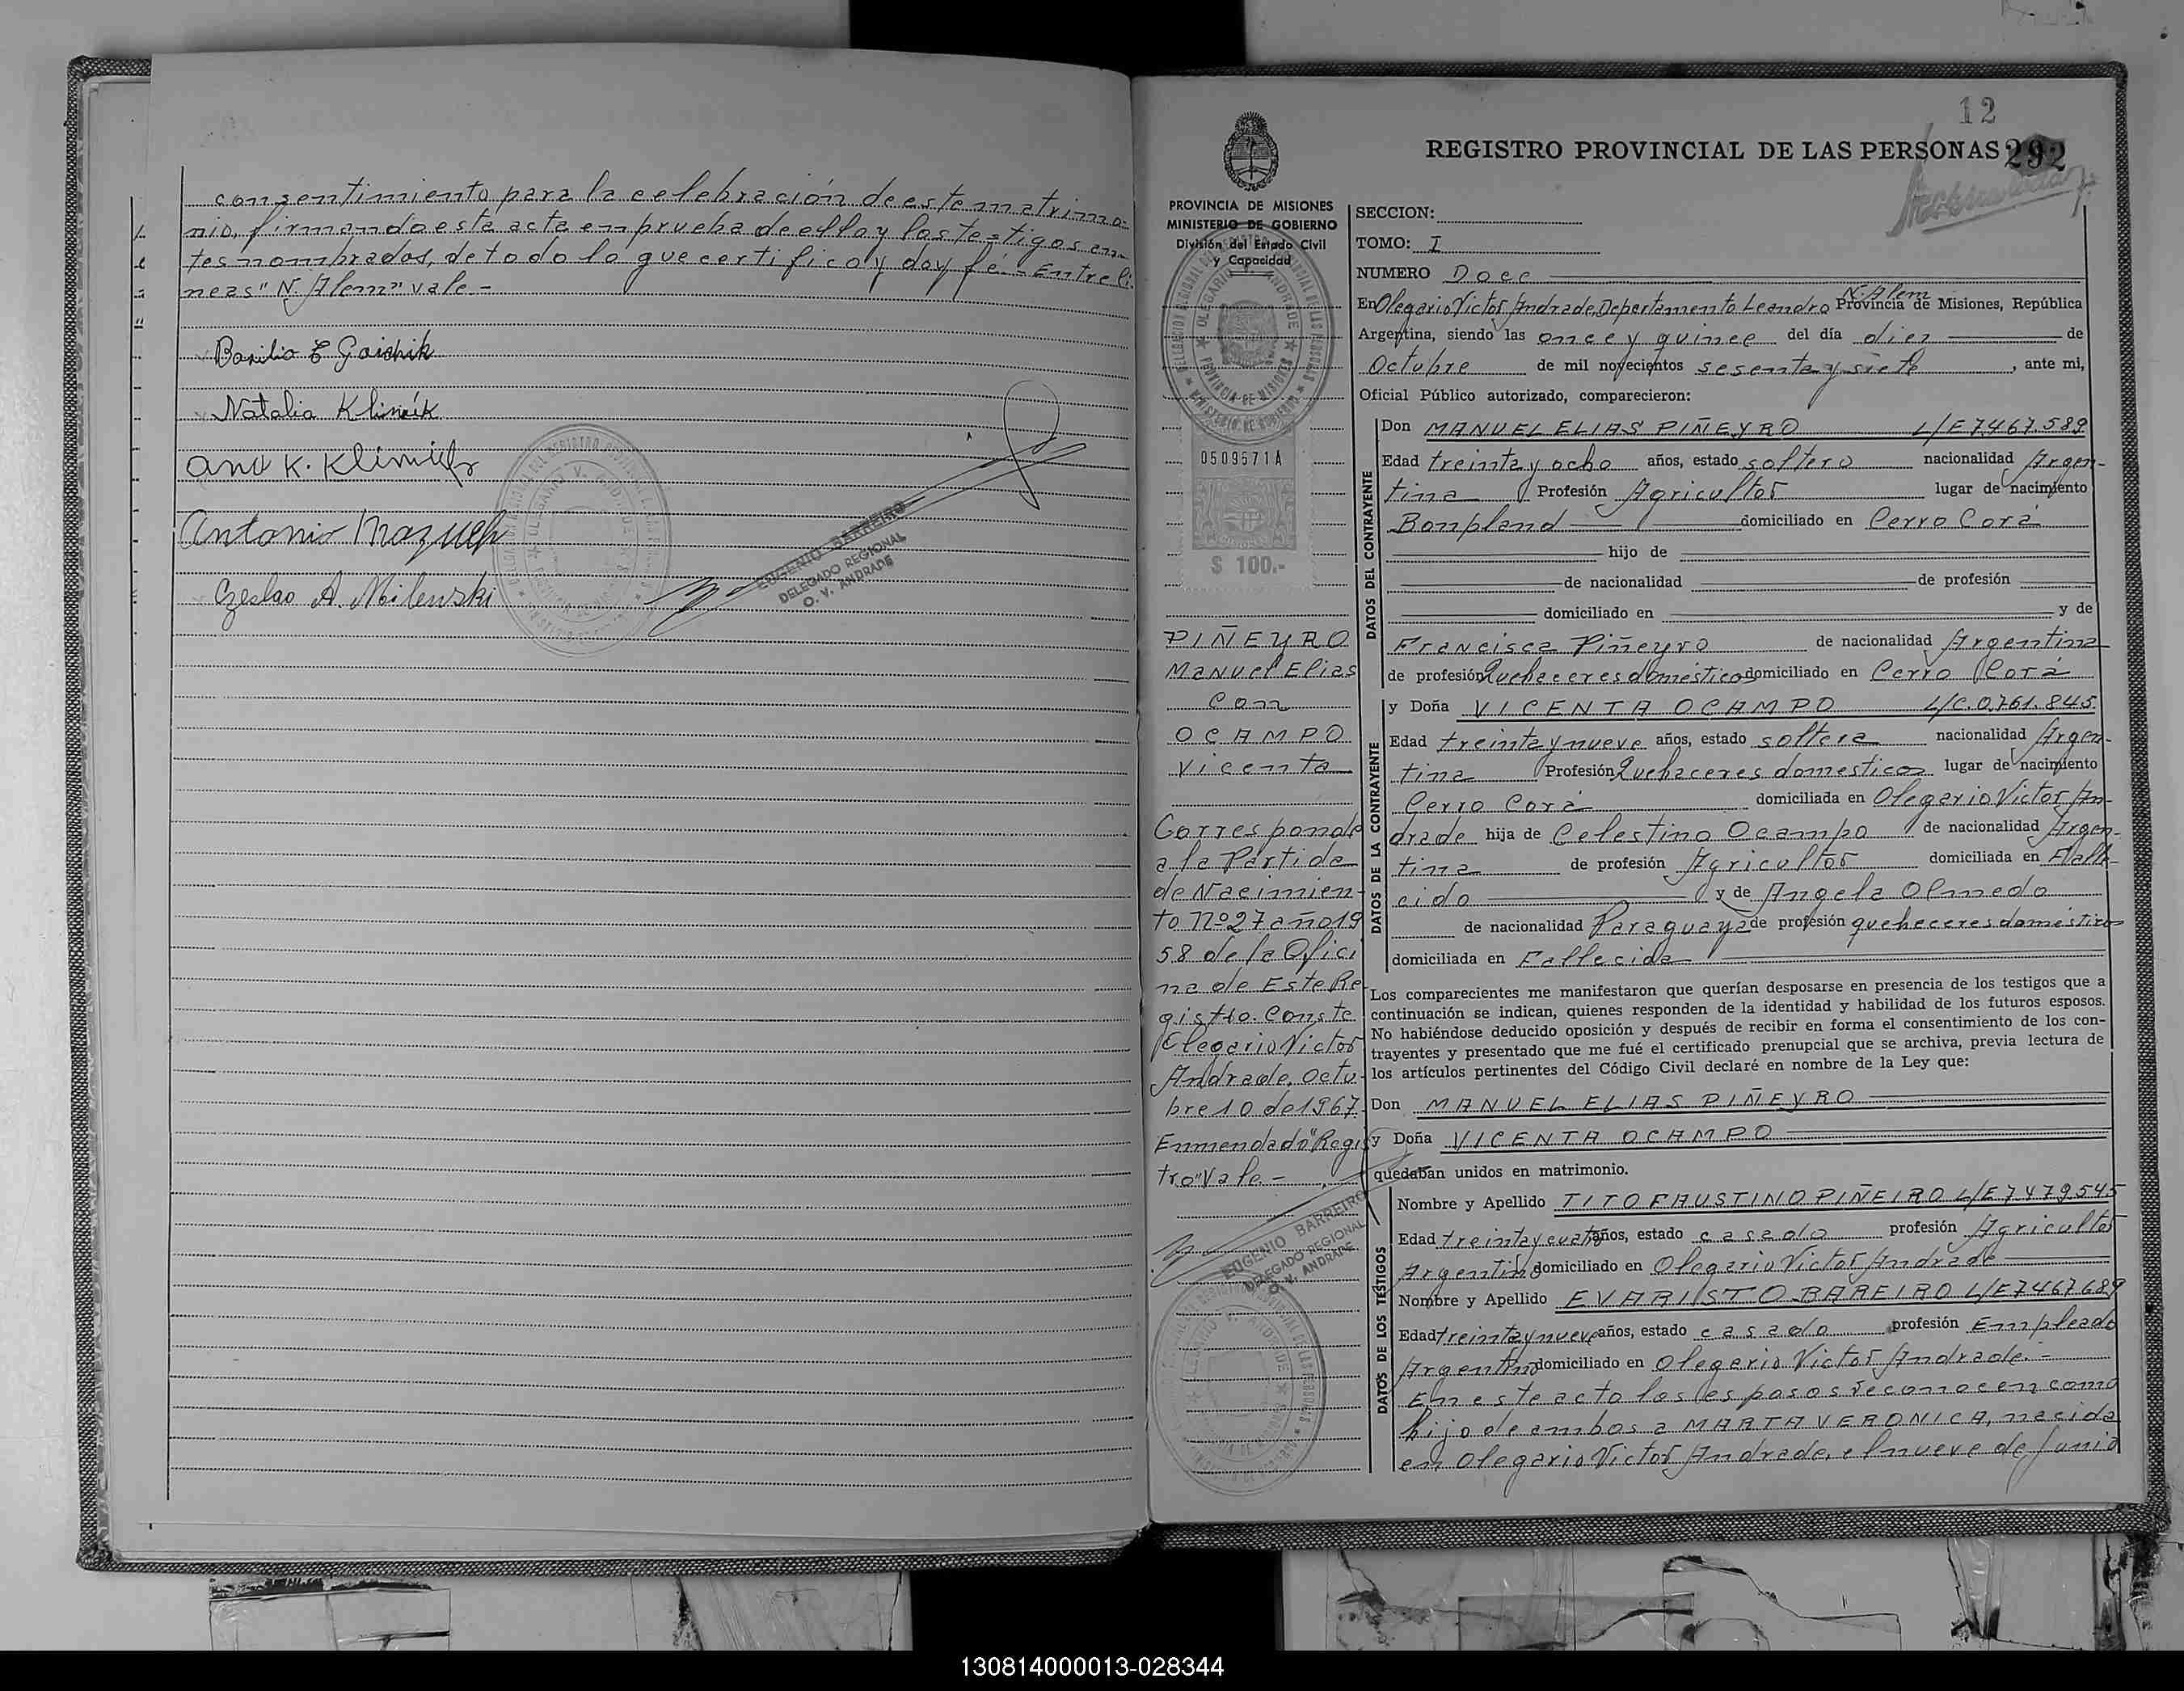 consentimiento para la celebración de este matrimo-
nio, firmando esta acta en prueba de ello y los testigos an-
tes nombrados, de todo lo que certifico y doy fé.- Entre li-
neas "N. Alem" vale -
Basilio E Goichik
Natalia Klimiuk
Ana K. Klimiuk
Antonio Mazuch
Czeslao A. Milewski
EUGENIO BARREIRO
DELEGADO REGIONAL
O. V. ANDRADE
12
REGISTRO PROVINCIAL DE LAS PERSONAS 292
PROVINCIA DE MISIONES
MINISTERIO DE GOBIERNO
División del Estado Civil
y Capacidad
0509571A
$ 100.-
PIÑEYRO
Manuel Elias
Con
OCAMPO
Vicenta
Corresponde
a la Partida
de Nacimien-
to Nº 27 año 19
58 de la Ofici
na de Este Re
gistro. Conste
Olegario Victor
Andrade, Octu-
bre 10 de 1967.
Enmendado "Regis
tro" Vale.-
EUGENIO BARREIRO
DELEGADO REGIONAL
O. V. ANDRADE
SECCION:
TOMO: I
NUMERO Doce
N. Alem
En Olegario Victor Andrade, Departamento Leandro Provincia de Misiones, República
Argentina, siendo las once y quince del día diez de
Octubre de mil novecientos sesenta y siete, ante mi,
Oficial Público autorizado, comparecieron:
DATOS DEL CONTRAYENTE
Don MANUEL ELIAS PIÑEYRO L/E 7.467.589
Edad treinta y ocho años, estado soltero nacionalidad Argen-
tina Profesión Agricultor lugar de nacimiento
Bonpland domiciliado en Cerro Corá
hijo de
de nacionalidad de profesión
domiciliado en y de
Francisca Piñeyro de nacionalidad Argentina
de profesión Quehaceres domésticos domiciliado en Cerro Corá
DATOS DE LA CONTRAYENTE
y Doña VICENTA OCAMPO L/C. 0.761.845.
Edad treinta y nueve años, estado soltera nacionalidad Argen-
tina Profesión Quehaceres domesticos lugar de nacimiento
Cerro Corá domiciliada en Olegario Victor An-
drade hija de Celestino Ocampo de nacionalidad Argen-
tina de profesión Agricultor domiciliada en Falle-
cido y de Angela Olmedo
de nacionalidad Paraguaya de profesión quehaceres domésticos
domiciliada en Fallecida
Los comparecientes me manifestaron que querían desposarse en presencia de los testigos que a
continuación se indican, quienes responden de la identidad y habilidad de los futuros esposos.
No habiéndose deducido oposición y después de recibir en forma el consentimiento de los con-
trayentes y presentado que me fué el certificado prenupcial que se archiva, previa lectura de
los artículos pertinentes del Código Civil declaré en nombre de la Ley que:
Don MANUEL ELIAS PIÑEYRO
y Doña VICENTA OCAMPO
quedaban unidos en matrimonio.
DATOS DE LOS TESTIGOS
Nombre y Apellido TITO FAUSTINO PIÑEIRO L/E 7.479.545
Edad treinta y cuatro años, estado casado profesión Agricultor
Argentino domiciliado en Olegario Victor Andrade
Nombre y Apellido EVARISTO BAREIRO L/E 7467689
Edad treinta y nueve años, estado casado profesión Empleado
Argentino domiciliado en Olegario Victor Andrade.-
En este acto los esposos reconocen como
hijo de ambos a MARTA VERONICA, nacida
en Olegario Victor Andrade, el nueve de Junio
130814000013-028344